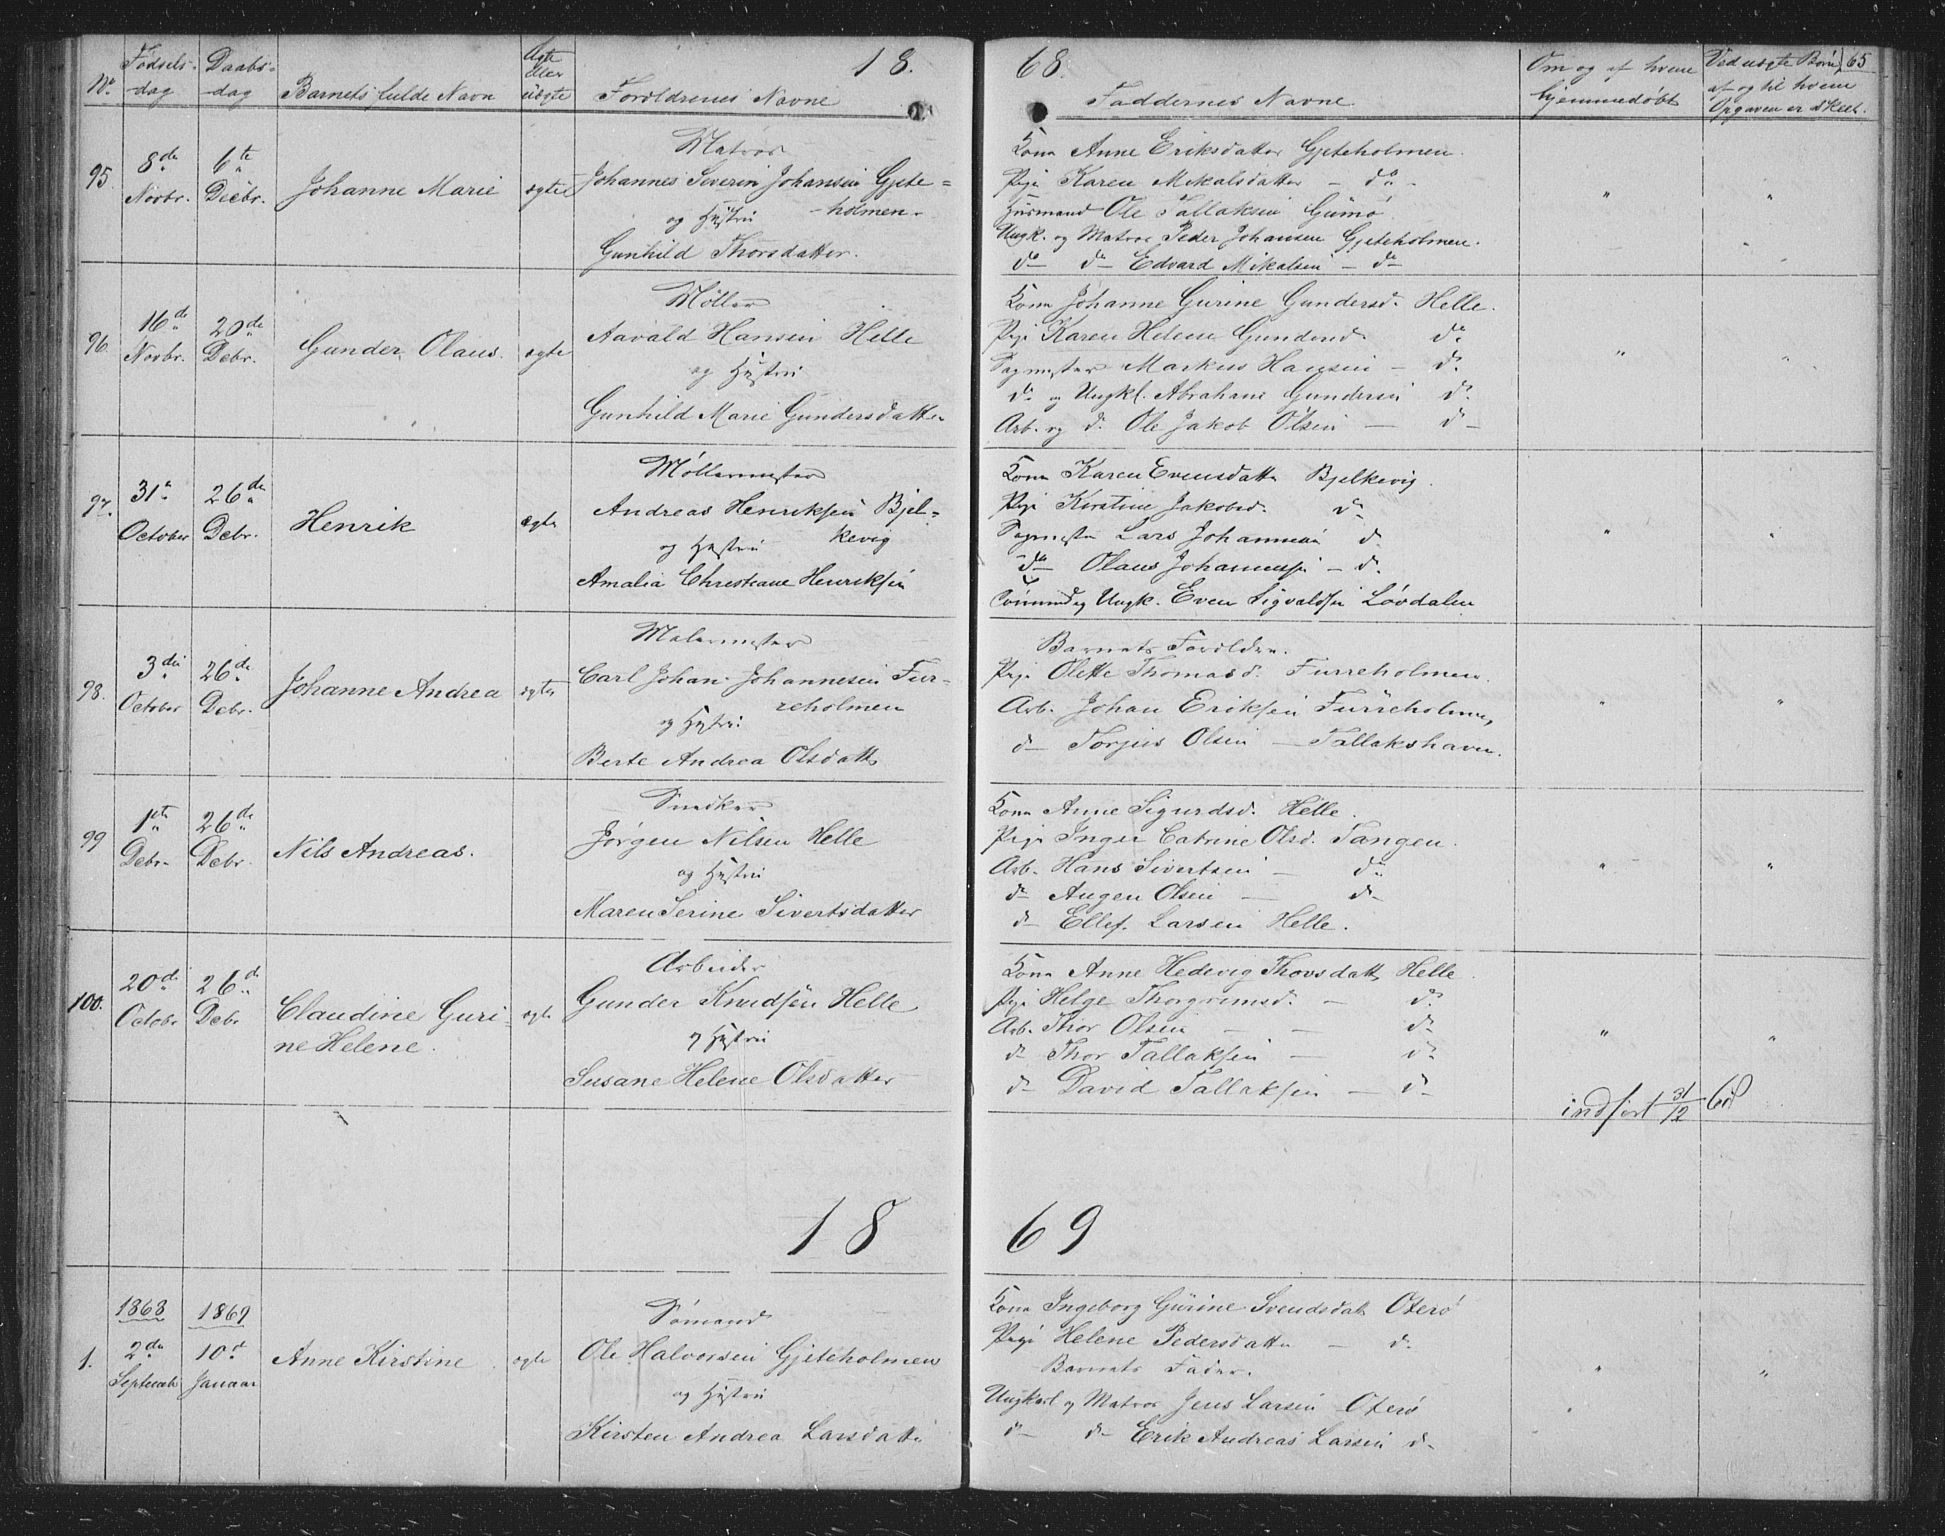 18.
68.
65
No.
Fødsels-
dag
Daabs-
dag
Barnets fulde Navn
Ægte
eller
uægte
Forældrenes Navne
Faddernes Navne
Om og af hvem
hjemmedøbt
Ved uægte Børn,
af og til hvem
Opgaven er skeet.
95.
8de
Novbr.
6te
Decbr.
Johanne Marie
ægte
Matros
Johannes Severin Johansen Gjete-
holmen.
og Hustru
Gunhild Thorsdatter.
Kone Anne Eriksdatter Gjeteholmen.
Pige Karen Mikalsdatter - do -
Husmand Ole Tallaksen Gumø
Ungk. og Matros Peder Johansen Gjeteholmen.
do do Edvard Mikalsen - do
96.
16de
Novbr.
20de
Debr.
Gunder Olaus.
ægte
Møller
Aavald Hansen Helle
og Hustru
Gunhild Marie Gundersdatter
Kone Johanne Gurine Gundersd. Helle.
Pige Karen Helene Gundersd. do
Sagmester Markus Hansen - do
do og Ungkl. Abraham Gundersen do
Arb. og do Ole Jakob Olsen - do
97.
31te
October
26de
Debr.
Henrik
ægte
Møllermester
Andreas Henriksen Bjel-
kevig
og Hustru
Amalia Christiane Henriksen
Kone Karen Evensdatter Bjelkevig.
Pige Kirstine Jakobsd. do
Sagmester Lars Johannesen do
do Olaus Johannesen - do
Sømand og Ungk. Even Sigvaldsen Løvdalen
98.
3die
October
26de
Debr.
Johanne Andrea
ægte
Malermester
Carl Johan Johannesen Fur-
reholmen
og Hustru
Berte Andrea Olsdatter
Barnets Forældre.
Pige Olette Thomasd. Furreholmen.
Arb. Johan Eriksen Furreholmen,
do Torjus Olsen - Tallakshavn.
99
1ste
Debr.
26de
Debr.
Nils Andreas.
Snedker
Jørgen Nilsen Helle
og Hustru
Maren Serine Sivertsdatter
Kone Anne Sigurdsd. Helle.
Pige Inger Catrine Olsd. Tangen.
Arb. Hans Sivertsen - do
do Augen Olsen - do
do Ellef Larsen Helle.
100.
20de
Octobr
26de
Debr
Claudine Guri-
ne Helene.
ægte
Arbeider
Gunder Knudsen Helle
og Hustru
Susane Helene Olsdatter
Kone Anne Hedevig Thorsdatter Helle
Pige Helge Thorgrimsd. - do
Arb. Thor Olsen - - do
do Thor Tallaksen - do
do David Tallaksen - do
indført 31/12 68
18
69
1868
1869
1.
2den
Septemb.
10de
Januar
Anne Kirstine
ægte
Sømand
Ole Halvorsen Gjeteholmen
og Hustru
Kirsten Andrea Larsdatter
Kone Ingeborg Gurine Svendsdat. Oterø
Pige Helene Pedersdatter - do
Barnets Fader.
Ungkarl og Matros Jens Larsen Oterø
do do Erik Andreas Larsen do